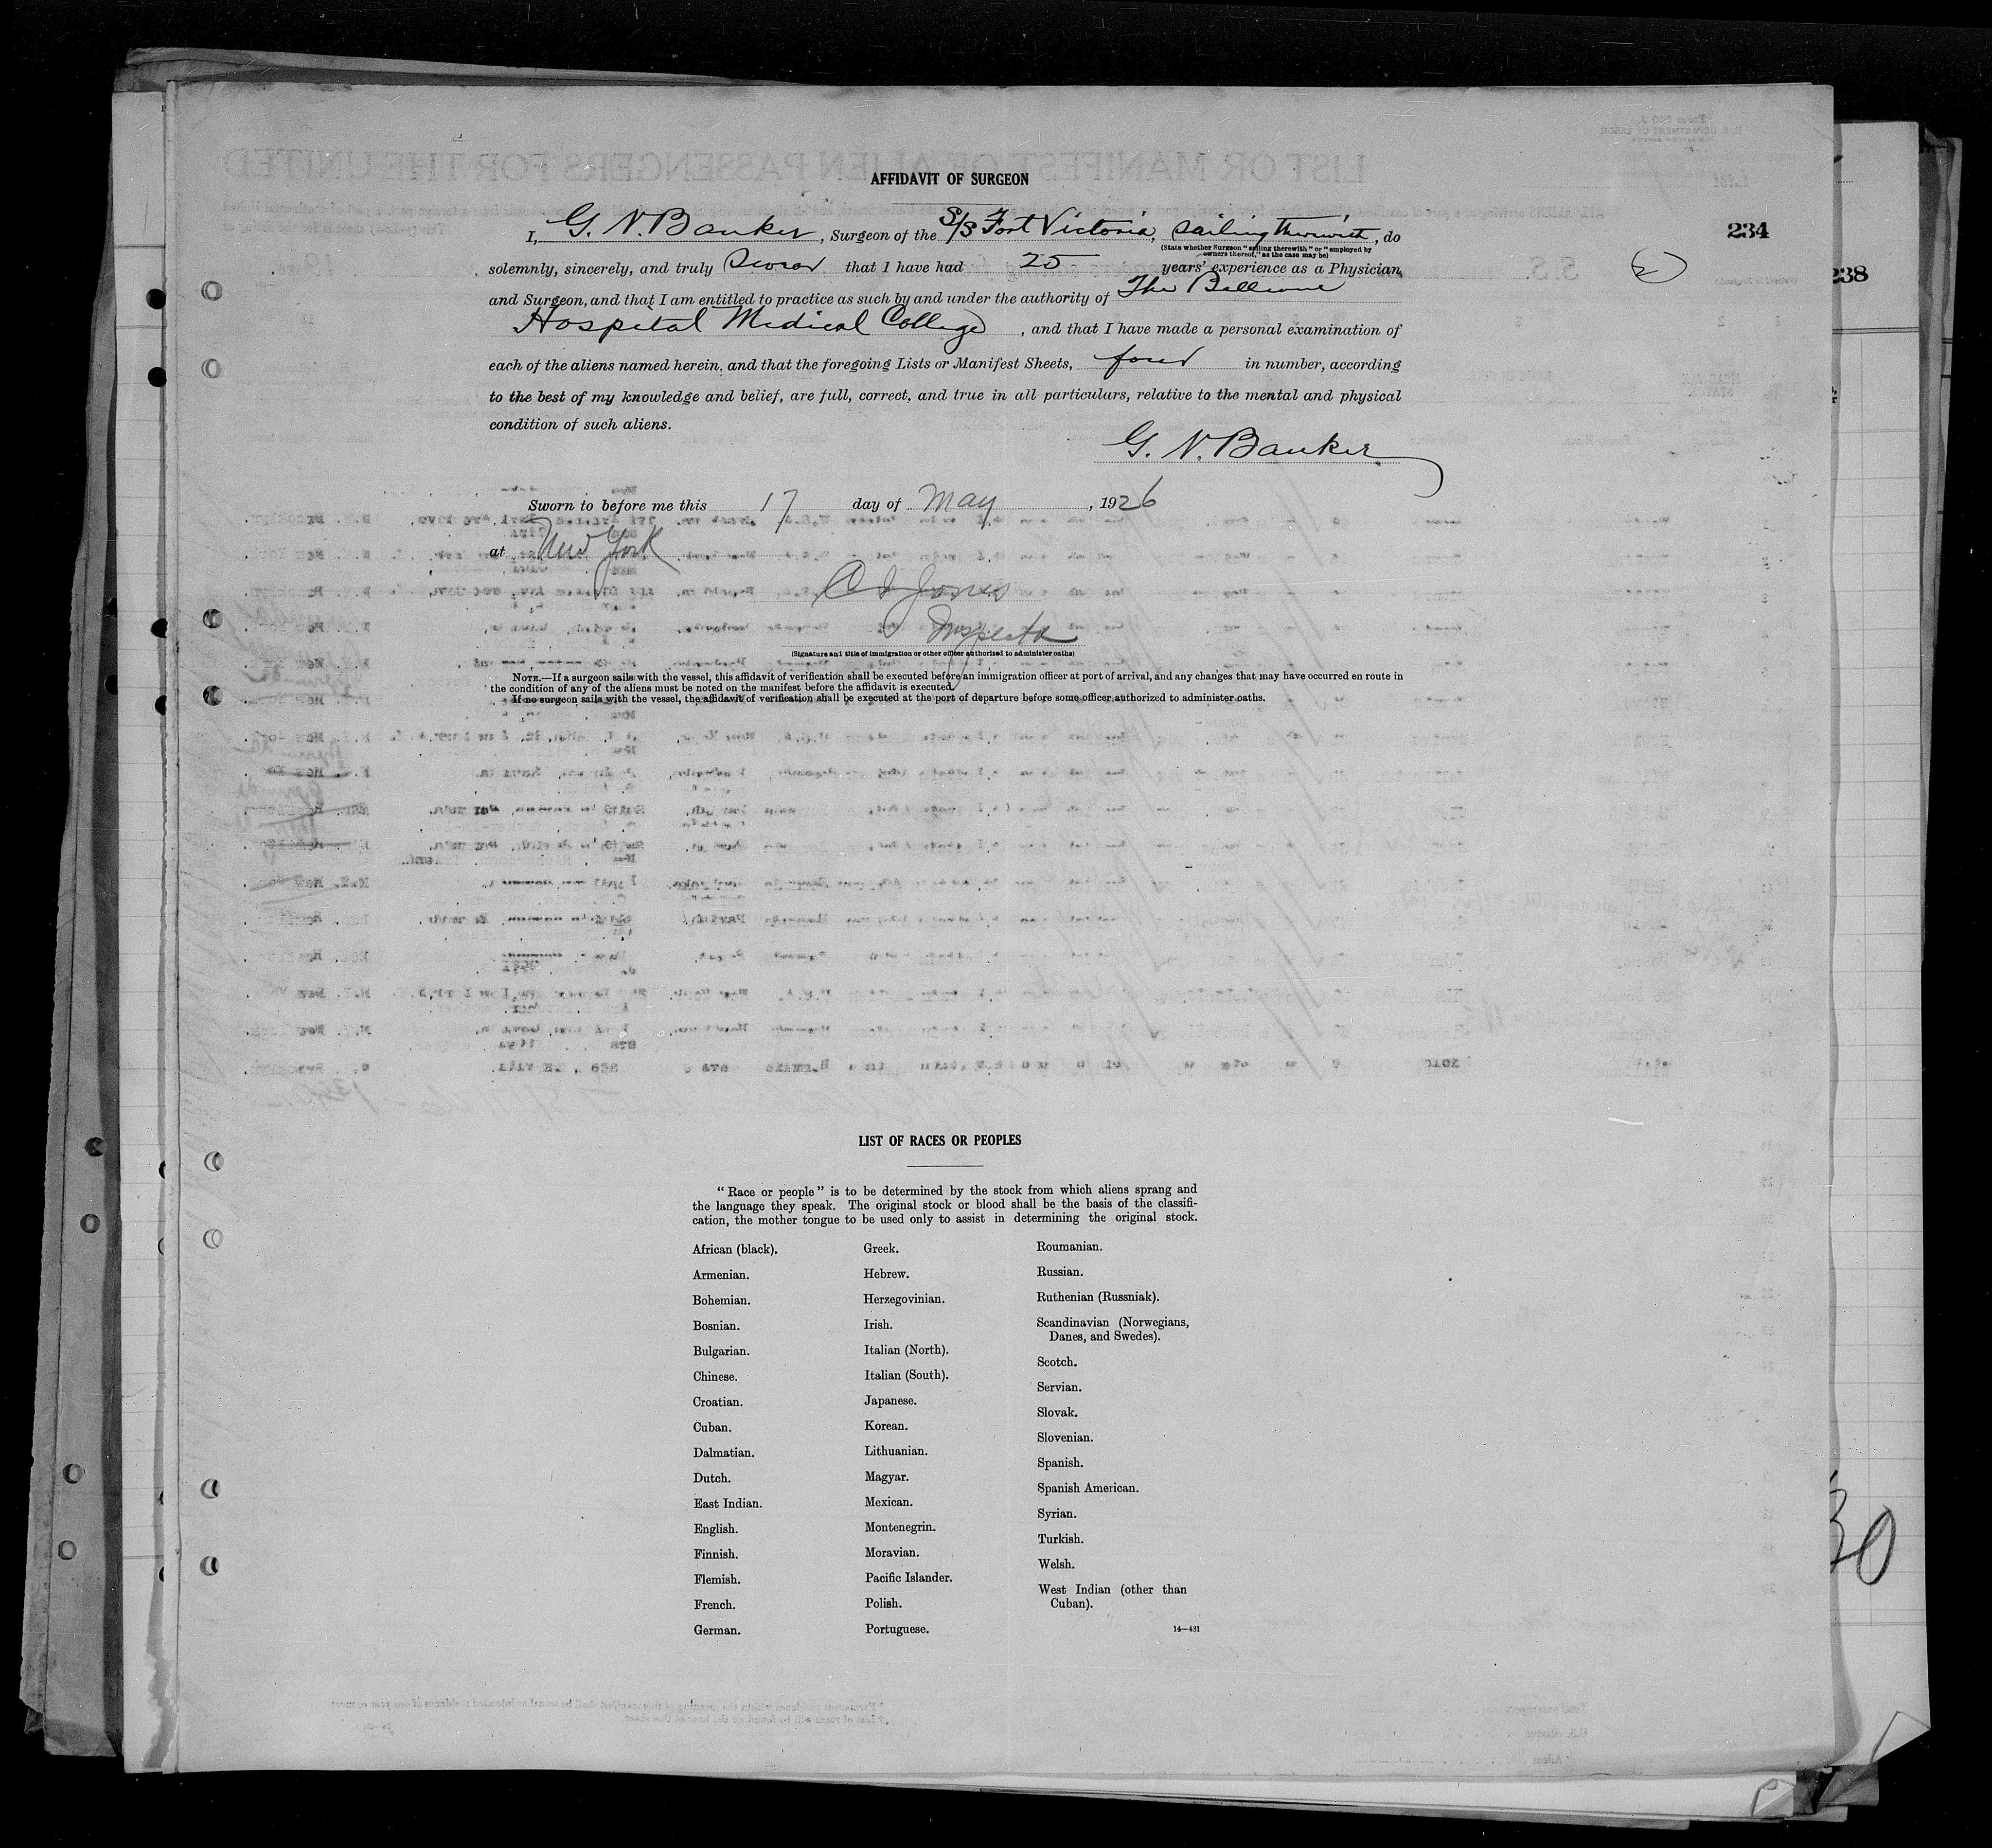 AFFIDAVIT OF SURGEON
234
238
I, G. N. Banker, Surgeon of the S/S Fort Victoria, sailing therewith, do
(State whether Surgeon "sailing therewith" or "employed by
owners thereof," as the case may be)
solemnly, sincerely, and truly swear that I have had 25 years' experience as a Physician
2
and Surgeon, and that I am entitled to practice as such by and under the authority of The Bellevue
Hospital Medical College, and that I have made a personal examination of
each of the aliens named herein, and that the foregoing Lists or Manifest Sheets, four in number, according
to the best of my knowledge and belief, are full, correct, and true in all particulars, relative to the mental and physical
condition of such aliens.
G. N. Banker
Sworn to before me this 17 day of May, 1926
at New York
Jones
Inspector
(Signature and title of immigration or other officer authorized to administer oaths)
NOTE.—If a surgeon sails with the vessel, this affidavit of verification shall be executed before an immigration officer at port of arrival, and any changes that may have occurred en route in
the condition of any of the aliens must be noted on the manifest before the affidavit is executed.
If no surgeon sails with the vessel, the affidavit of verification shall be executed at the port of departure before some officer authorized to administer oaths.
LIST OF RACES OR PEOPLES
"Race or people" is to be determined by the stock from which aliens sprang and
the language they speak. The original stock or blood shall be the basis of the classifi-
cation, the mother tongue to be used only to assist in determining the original stock.
African (black).
Armenian.
Bohemian.
Bosnian.
Bulgarian.
Chinese.
Croatian.
Cuban.
Dalmatian.
Dutch.
East Indian.
English.
Finnish.
Flemish.
French.
German.
Greek.
Hebrew.
Herzegovinian.
Irish.
Italian (North).
Italian (South).
Japanese.
Korean.
Lithuanian.
Magyar.
Mexican.
Montenegrin.
Moravian.
Pacific Islander.
Polish.
Portuguese.
Roumanian.
Russian.
Ruthenian (Russniak).
Scandinavian (Norwegians,
Danes, and Swedes).
Scotch.
Servian.
Slovak.
Slovenian.
Spanish.
Spanish American.
Syrian.
Turkish.
Welsh.
West Indian (other than
Cuban).
14—431
30